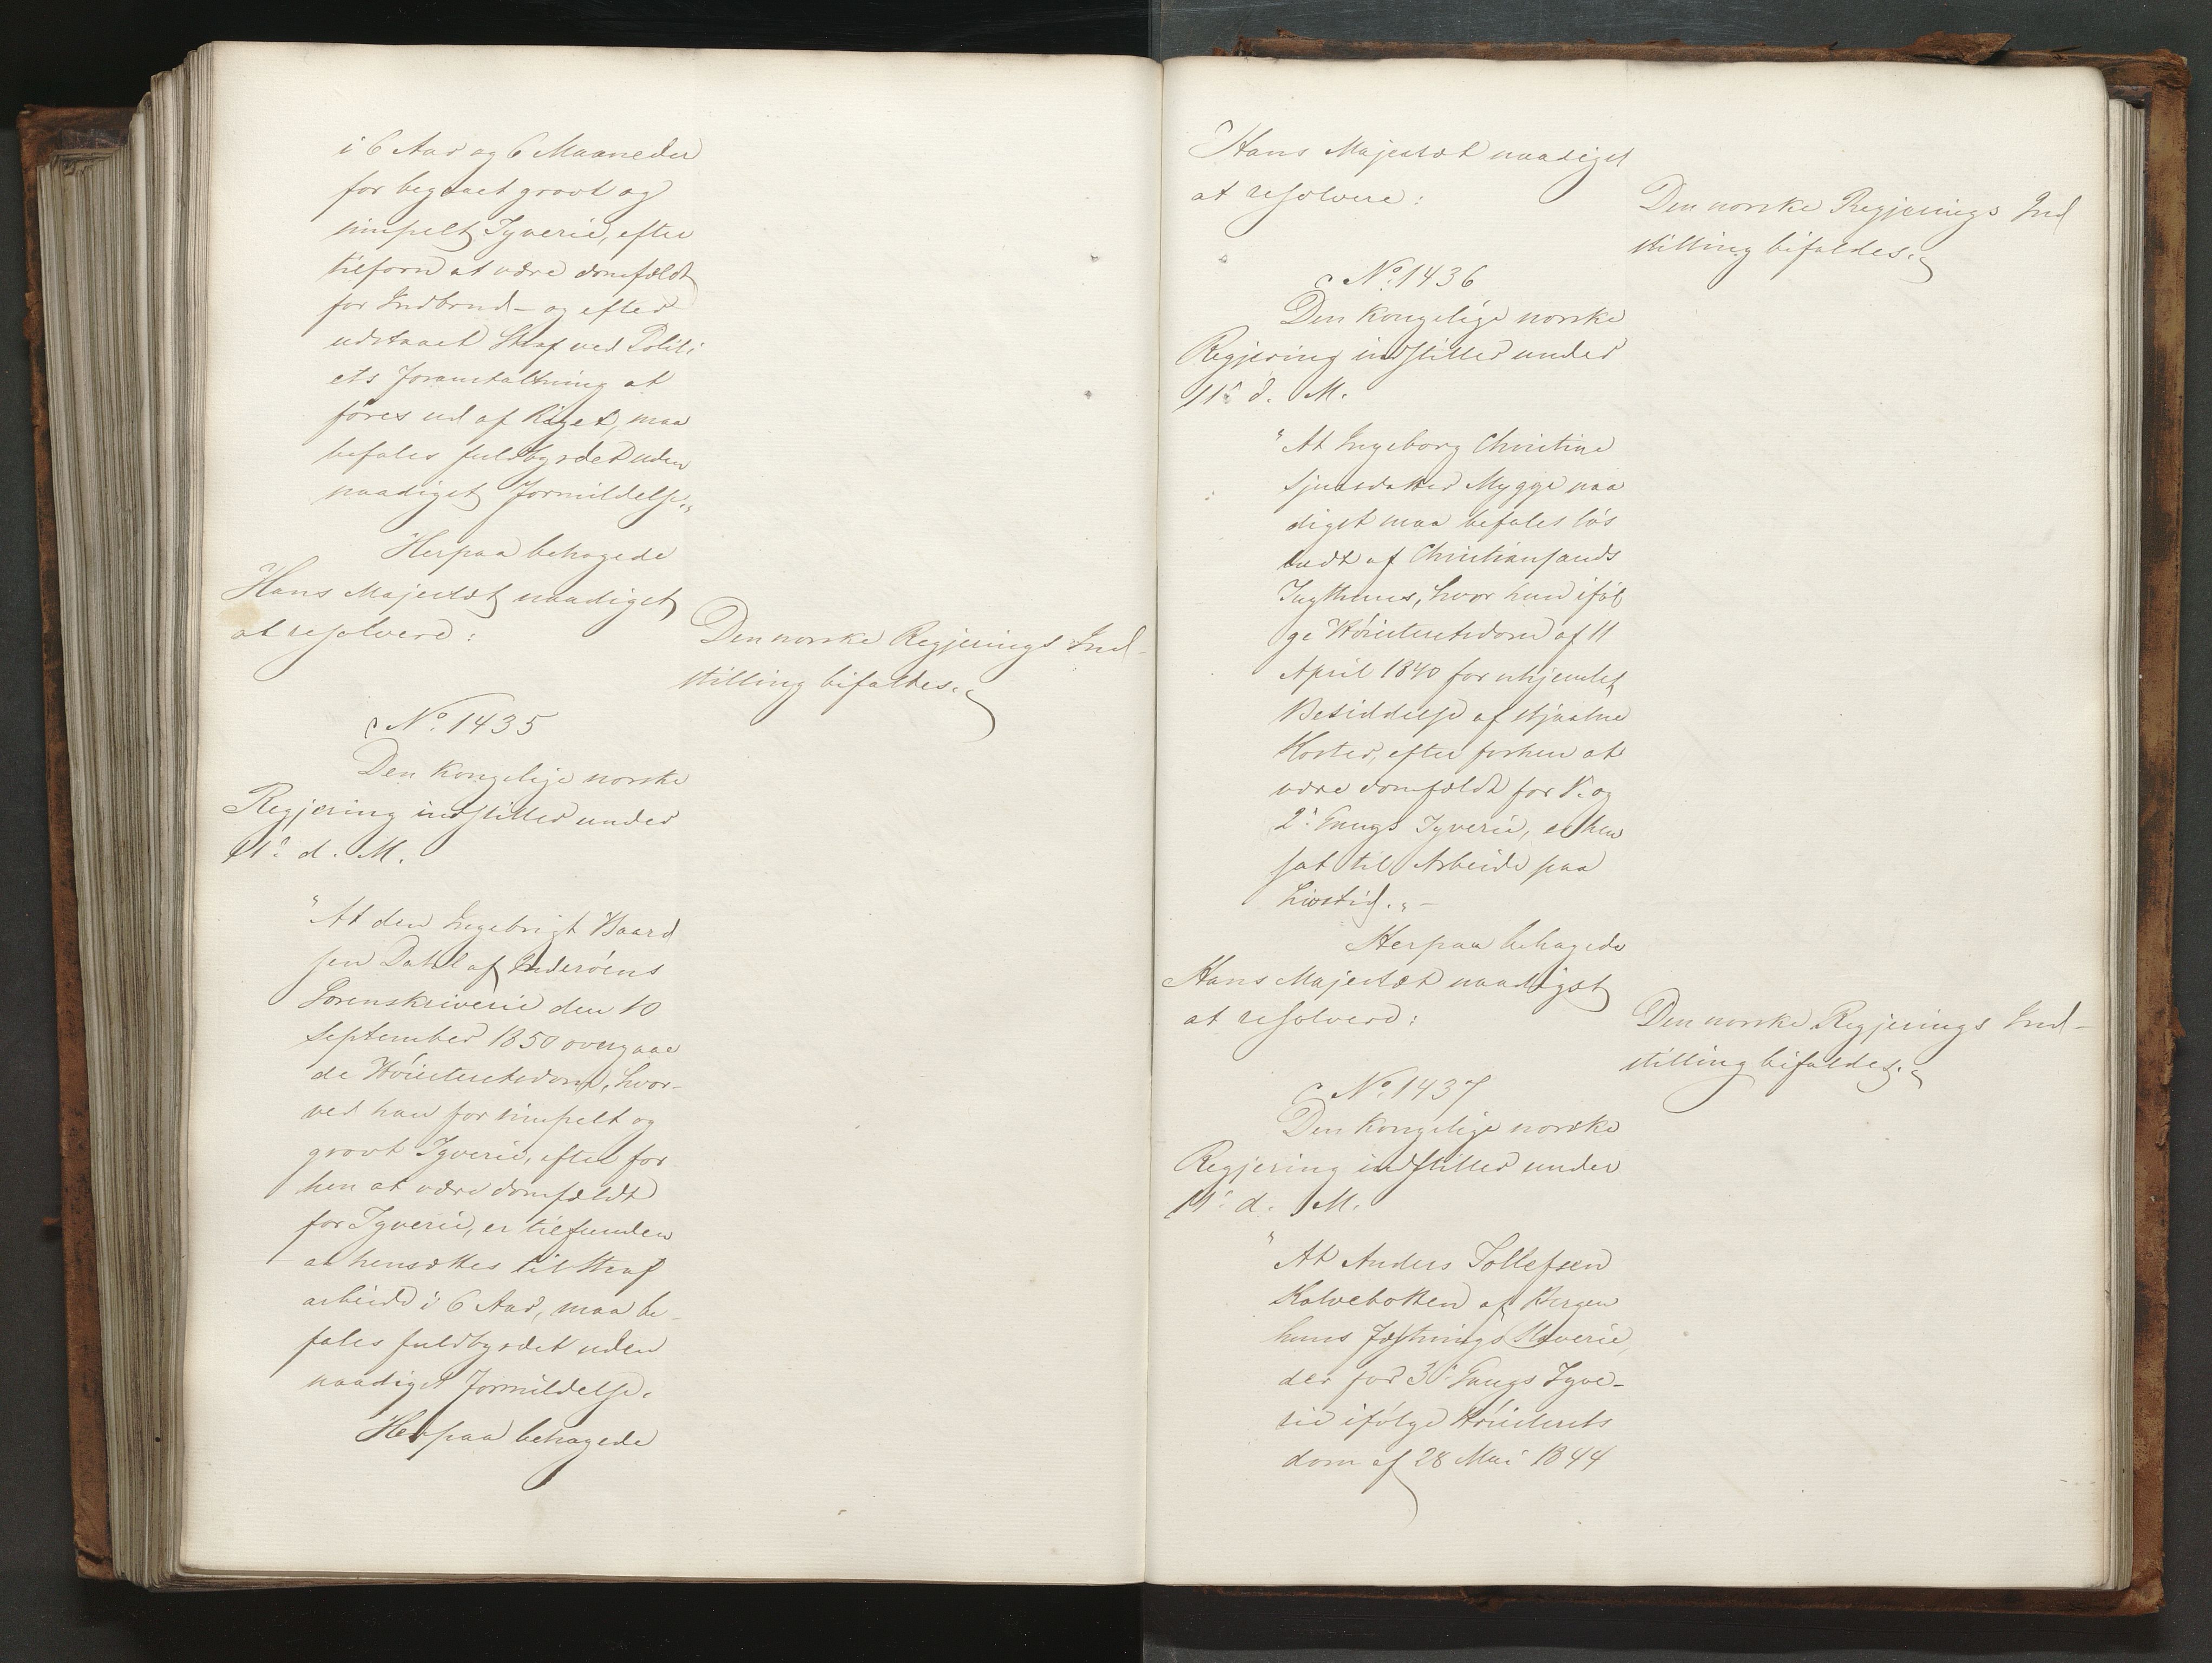 i 6 Aar og 6 Maaneder
for begaaet grovt og
simpelt Tyverie, efter
tilforn at være domfældt
for Indbrud – og efter
udstaaet Straf ved Politi
ets Foranstaltning at
føres ud af Riget, maa
befales fuldbyrdet uden
naadigst Formildelse."
Herpaa behagede
Hans Majestæt naadigst
at resolvere:
Den norske Regjerings Ind-
stilling bifaldes.
No. 1435
Den Kongelige norske
Regjering indstiller under
11te d. M.
"At den Ingebrigt Baard
sen Dahl af Inderøens
Sorenskriverie den 10
September 1850 overgaae
de Høiesteretsdom, hvor-
ved han for simpelt og
grovt Tyverie, efter for
hen at være domfældt
for Tyverie, er tilfunden
at hensættes til Straf
arbeide i 6 Aar, maa be-
fales fuldbyrdet uden
naadigst Formildelse.
Herpaa behagede
Hans Majestæt naadigst
at resolvere:
Den norske Regjerings Ind
stilling bifaldes.
No. 1436
Den Kongelige norske
Regjering indstiller under
11te d. M.
"At Ingeborg Christine
Mygge naa
digst maa befales løs
ladt af Christiansands
Tugthuus, hvor hun iføl
ge Høiesteretsdom af 11
April 1840 for uhjemlet
Besiddelse af stjaalne
Koster, efter forhen at
være domfældt for 1. og
2. Gangs Tyverie, er hen
sat til Arbeide paa
Livstid." –
Herpaa behagede
Hans Majestæt naadigst
at resolvere:
Den norske Regjerings Ind-
stilling bifaldes.
No. 1437
Den Kongelige norske
Regjering indstiller under
11te d. M.
"At Anders Tollefsen
Kalvebotten af Bergen
huus Fæstnings Slaverie,
der for 3die Gangs Tyve-
rie ifølge Høiesterets
dom af 28 Mai 1844